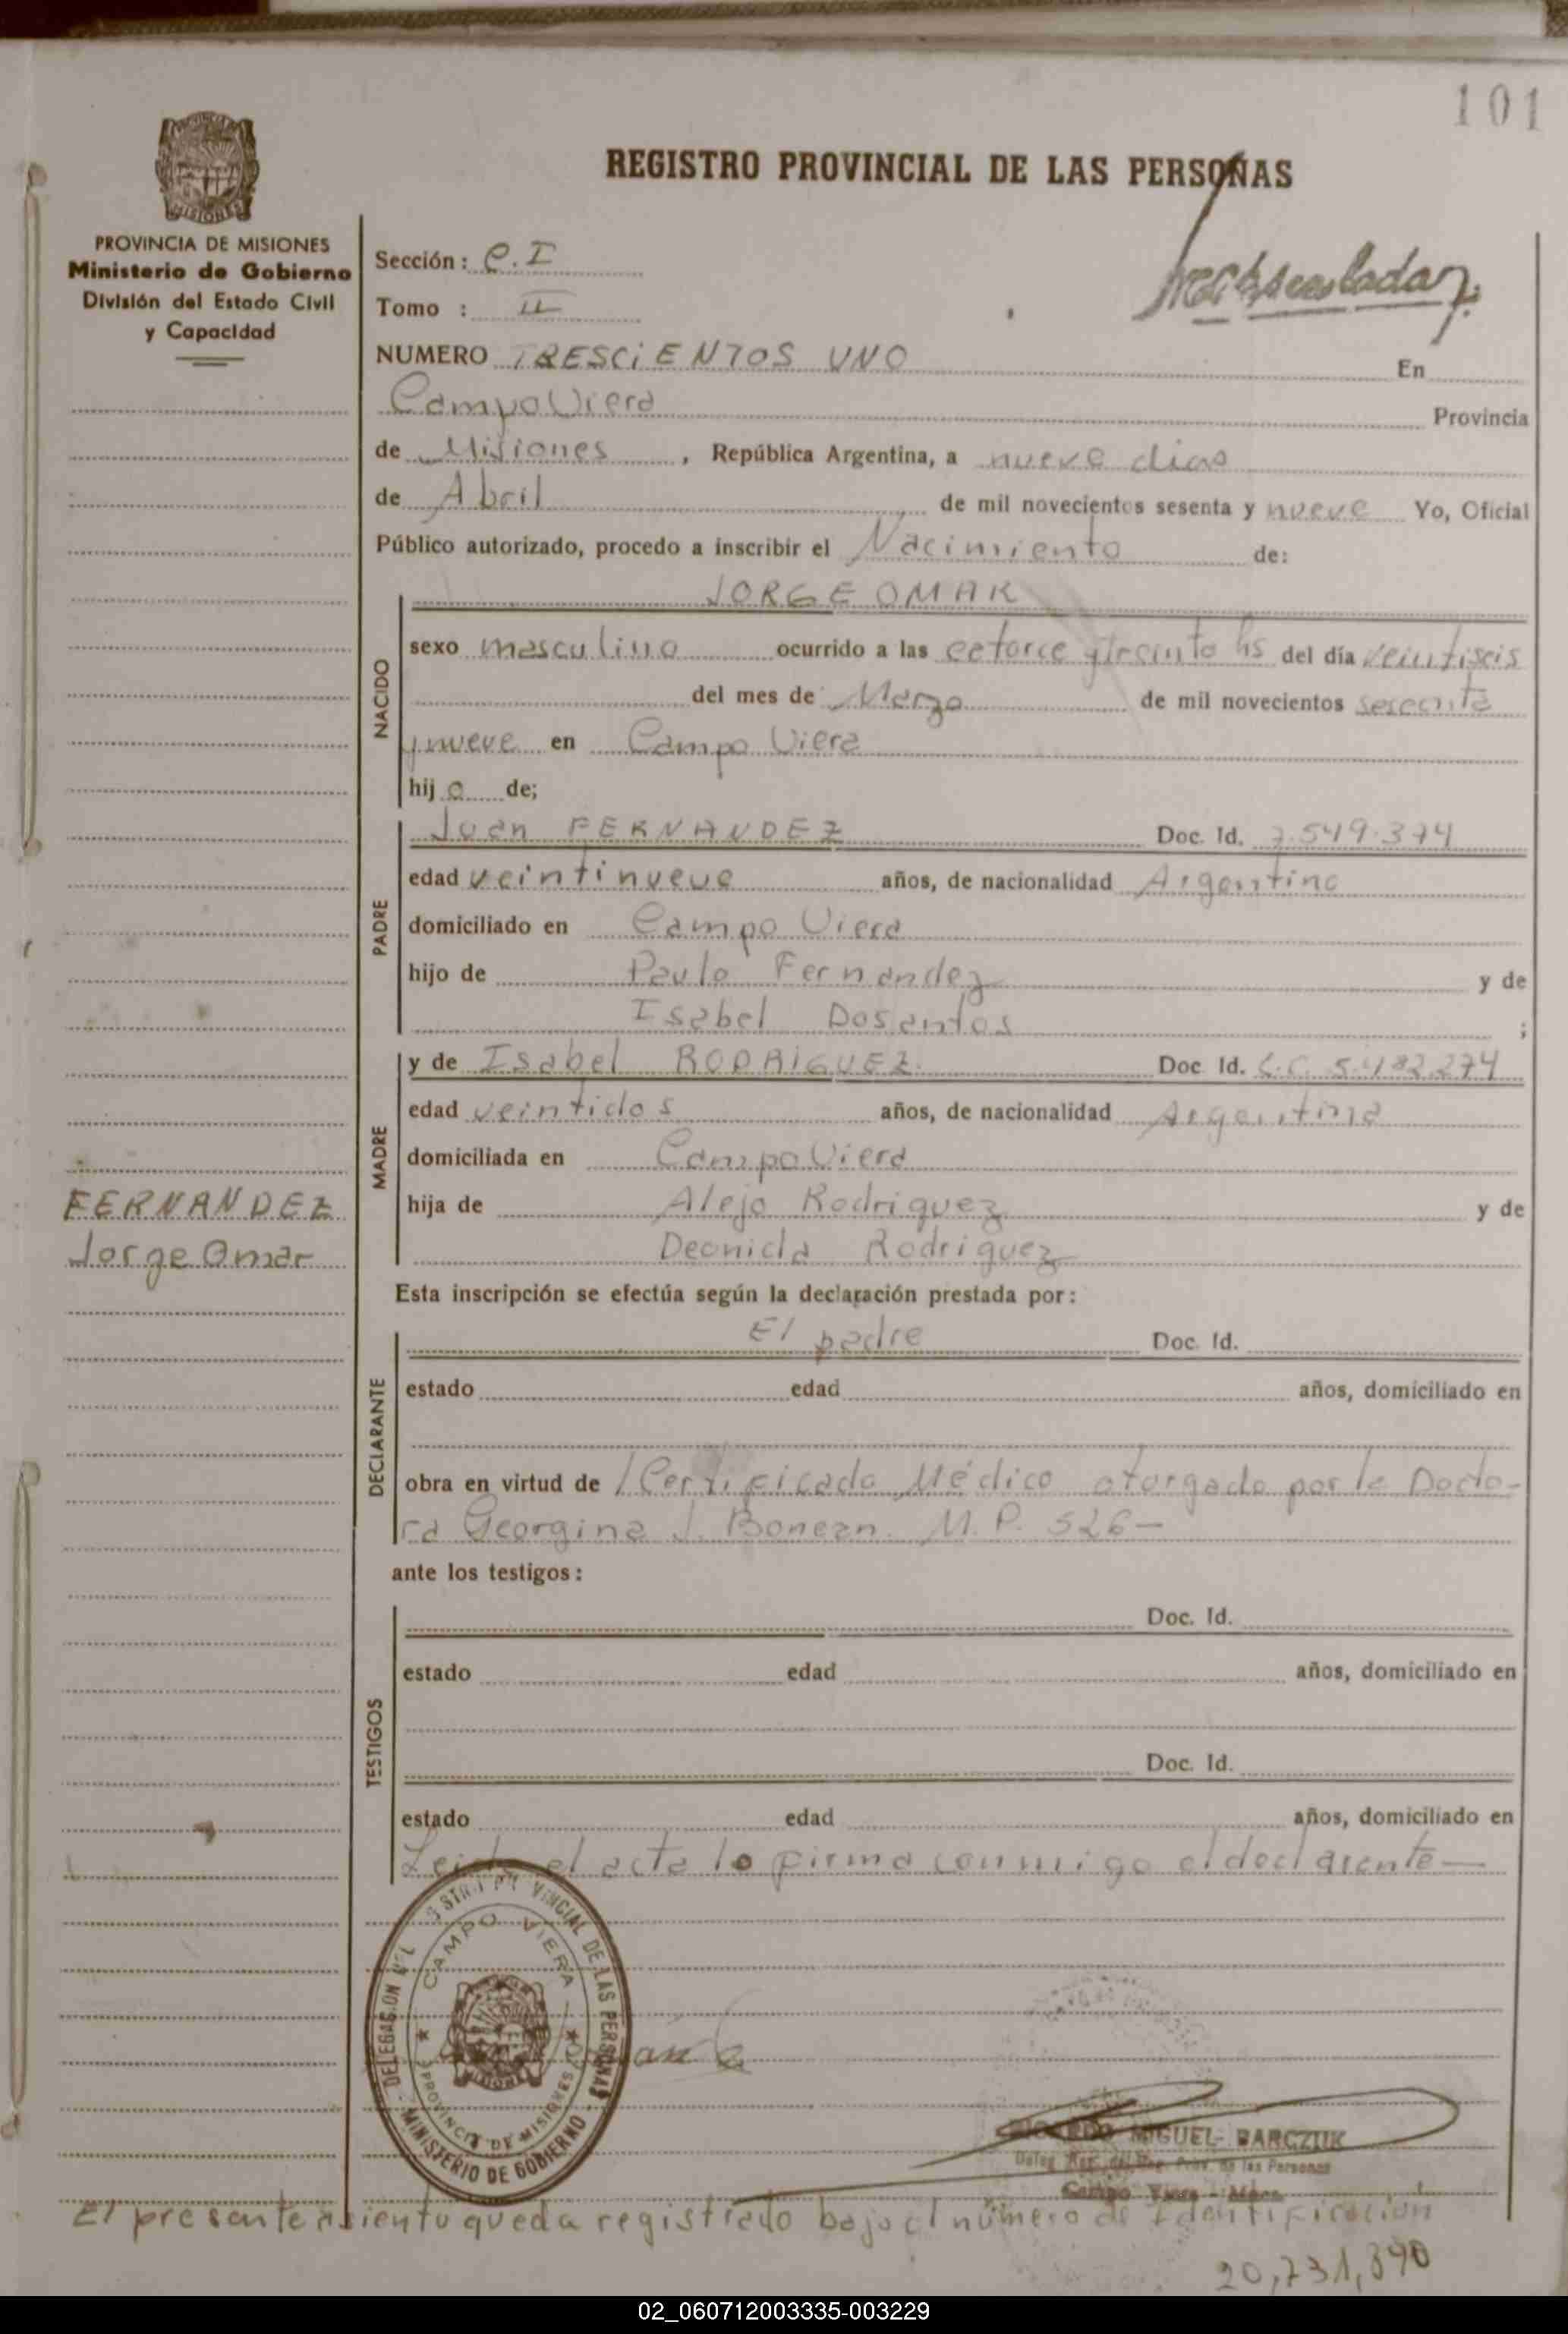 101
REGISTRO PROVINCIAL DE LAS PERSONAS
PROVINCIA DE MISIONES
Ministerio de Gobierno
División del Estado Civil
y Capacidad
Sección: C.I
Tomo : II
NUMERO TRESCIENTOS UNO En
Campo Viera Provincia
de Misiones, República Argentina, a nueve dias
de Abril de mil novecientos sesenta y nueve Yo, Oficial
Público autorizado, procedo a inscribir el Nacimiento de:
JORGE OMAR
NACIDO
sexo masculino ocurrido a las catorce y treinta hs del día veintiseis
del mes de Marzo de mil novecientos sesenta
y nueve en Campo Viera
hij o de;
PADRE
Juan FERNANDEZ Doc. Id. 7.549.374
edad veintinueve años, de nacionalidad Argentino
domiciliado en Campo Viera
hijo de Paulo Fernandez y de
Isabel Dosantos ;
MADRE
y de Isabel RODRIGUEZ Doc. Id. L.C. 5.482.274
edad veintidos años, de nacionalidad Argentina
domiciliada en Campo Viera
hija de Alejo Rodriguez y de
Deonicla Rodriguez
FERNANDEZ
Jorge Omar
Esta inscripción se efectúa según la declaración prestada por:
DECLARANTE
El padre Doc. Id.
estado edad años, domiciliado en
obra en virtud de Certificado Médico otorgado por la Docto-
ra Georgina J. M. P. 526-
ante los testigos:
TESTIGOS
Doc. Id.
estado edad años, domiciliado en
Doc. Id.
estado edad años, domiciliado en
Leida el acta lo firma conmigo el declarante
DELEGACION DEL REGISTRO PROVINCIAL DE LAS PERSONAS
CAMPO VIERA
PROVINCIA DE MISIONES
MINISTERIO DE GOBIERNO
RICARDO MIGUEL BARCZUK
Campo Viera - Mnes.
El presente asiento queda registrado bajo el número de Identificación
20,731,890
02_060712003335-003229